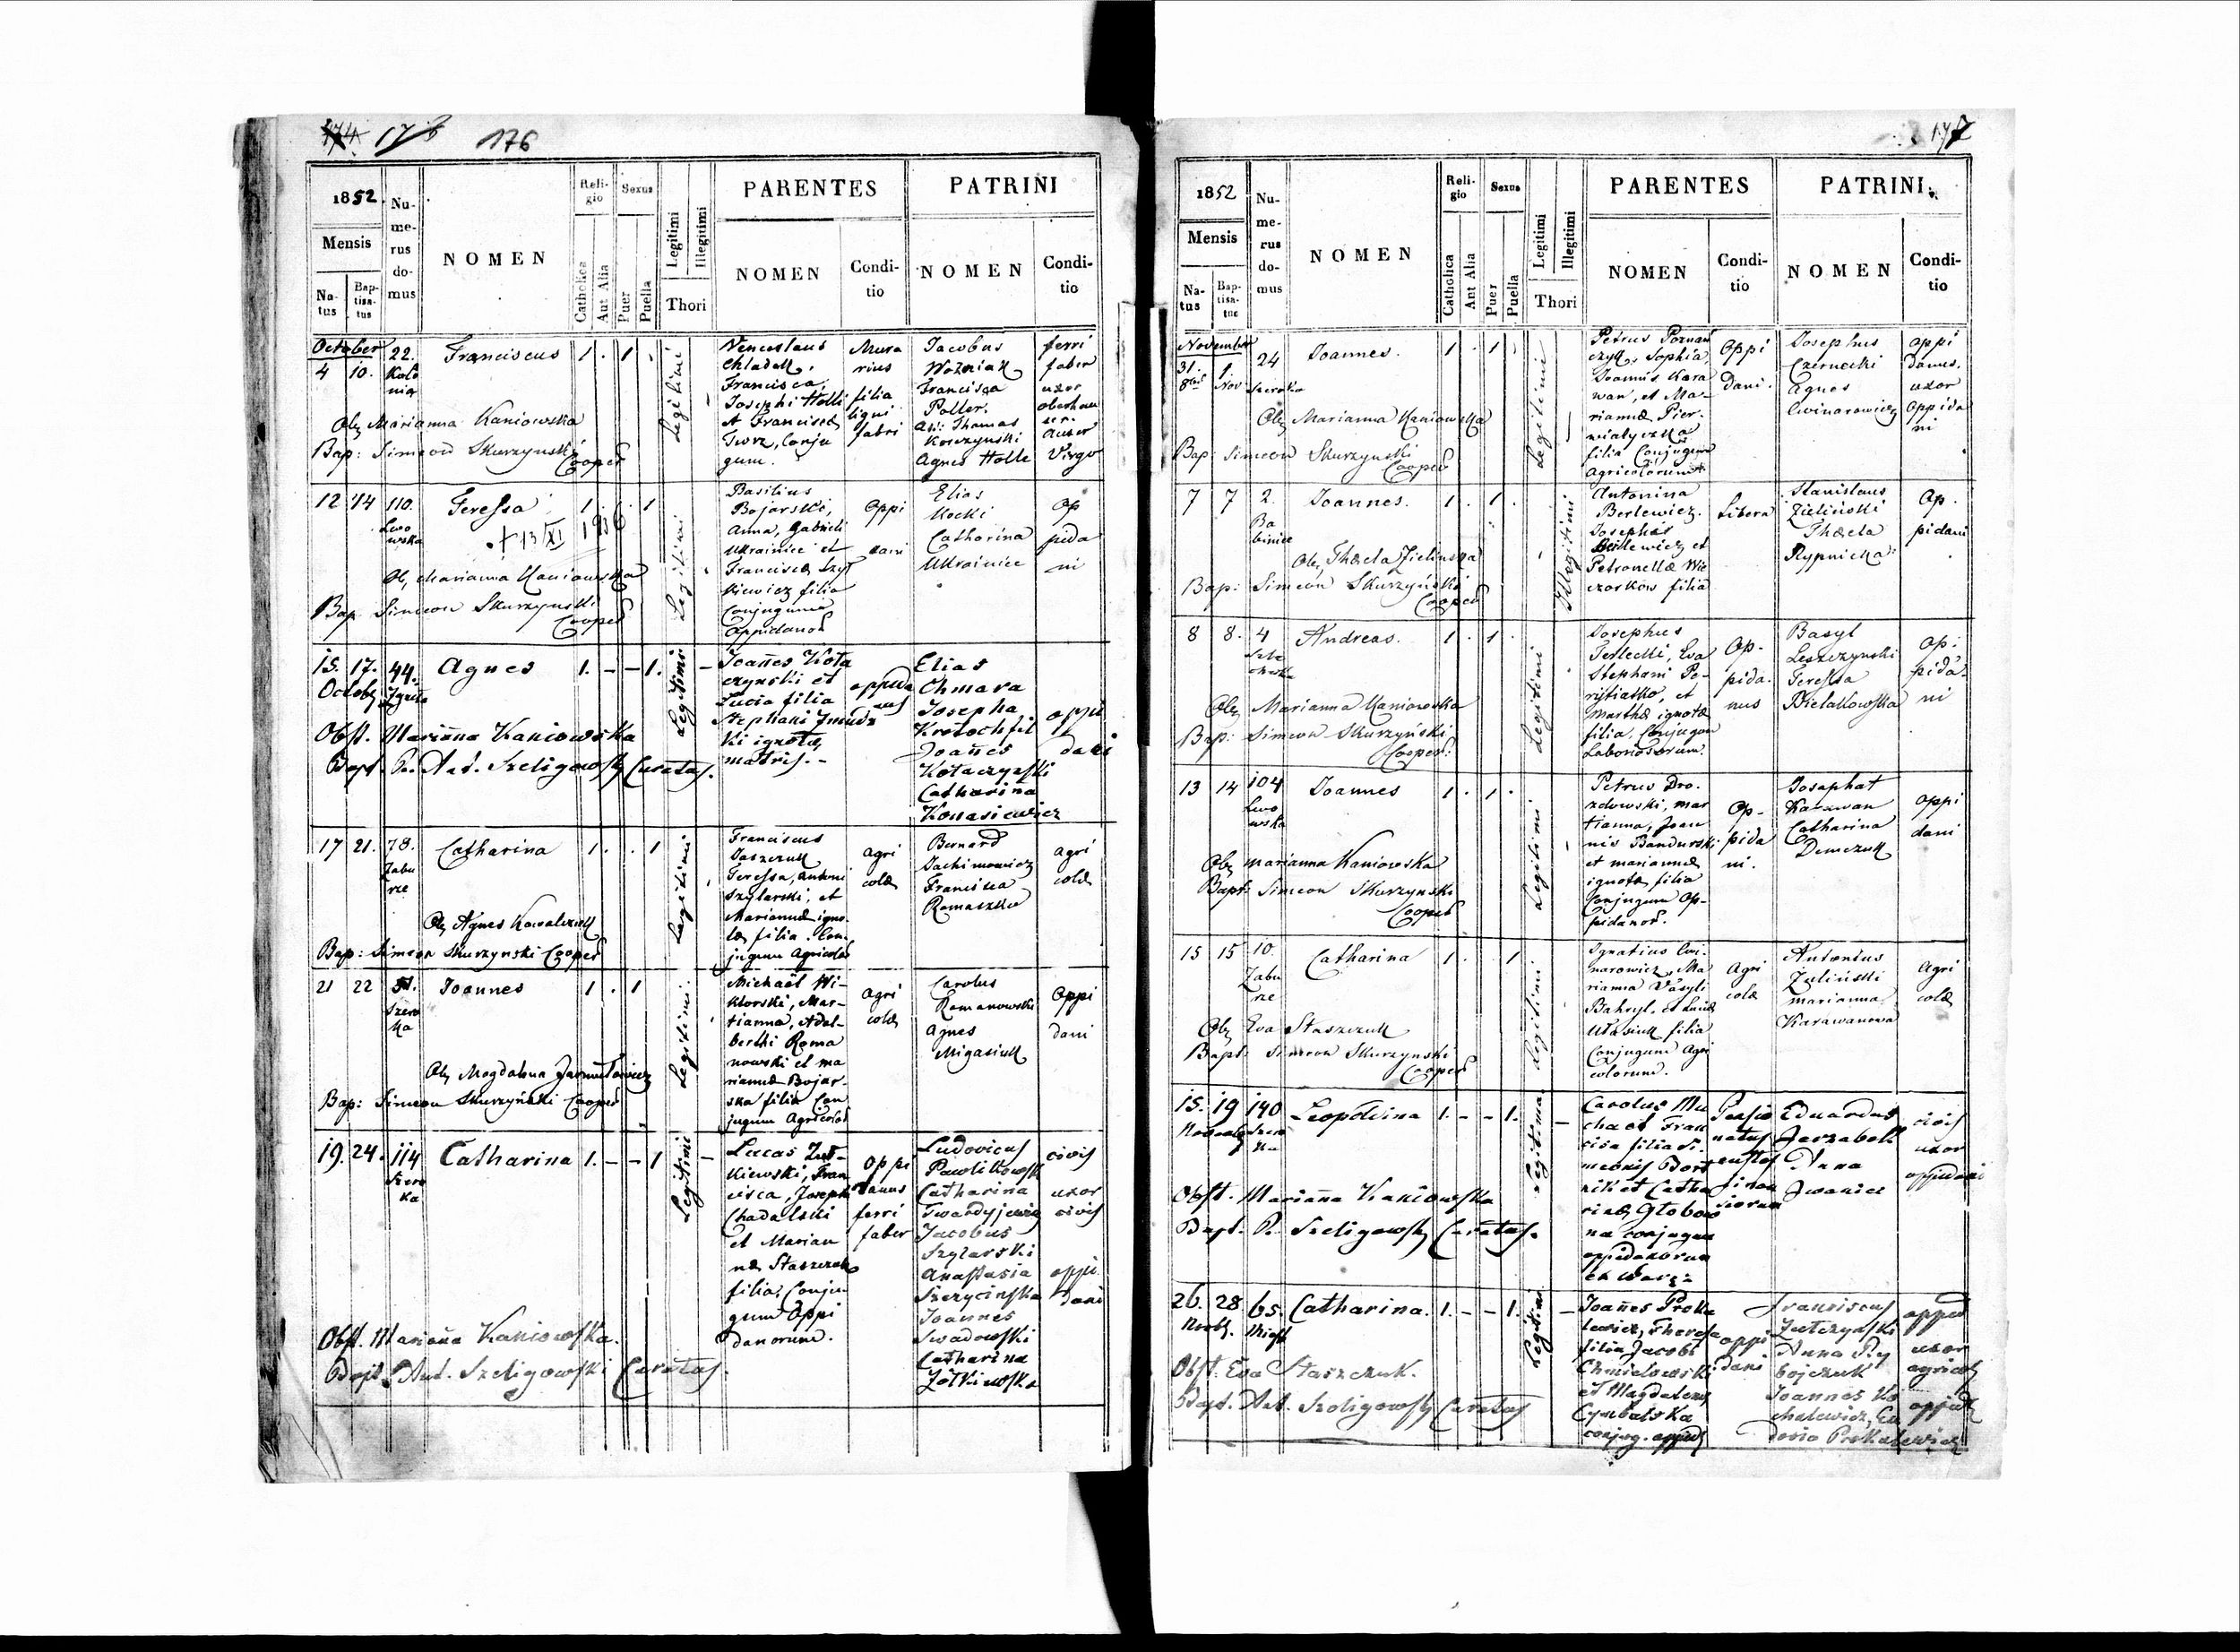 174 176 176
1852.
Numerus domus
NOMEN
Religio
Sexus
PARENTES
PATRINI
Mensis
Natus
Baptisatus
Catholica
Aut Alia
Puer
Puella
Legitimi
Illegitimi
Thori
NOMEN
Conditio
NOMEN
Conditio
October
4 10. 22. Franciscus 1 . 1 .
Kolo
nia
Legitimi
Venceslaus
Chladek,
Francisca,
Josephi Holli
et Franciscæ
Twrz, Conju
gum.
Mura
rius
filia
ligni
fabri
Jacobus
Woźniak
Francisca
Poller.
As: Thomas
Korczynski
Agnes Holle
ferri
faber
uxor
Virgo
Obs Marianna Kaniowska
Bap: Simeon Skurzynski
Cooper
12 14 110. Teressa 1 . . 1
Lwo
wska
+ 13/XI 1936
Legitimi
Basilius
Bojarski,
Anna, Gabrieli
Ukrainice et
Franciscæ Szyt
kiewicz filia
Conjugum
Oppidanor
Oppi
dani
Elias
Kocki
Catharina
Ukrainice
Op
pida
ni
Ob, Marianna Kaniowska
Bap Simeon Skurzynski
Cooper
15. 17. 44. Agnes 1. – – 1. –
Octob
Legitimi
Joañes Kota
czynski et
Lucia filia
Stephani Zmudz
ki ignotæ
matris. –
oppida
nus
Elias
Chmara
Josepha
Krotochfil
Joañes
Kotaczynski
Catharina
Konasiewicz
oppi
dani
Obst. Mariana Kaniowska
Bapt. P. Ant. Szeligowski Curatus.
17 21. 78. Catharina 1. . . 1
Zabu
rze
Legitimi
Franciscus
Jaszczuk
Teressa, Antoni
Szylarski, et
Mariannæ igno-
tæ filia. Con
jugum Agricolar
agri
colæ
Bernard
Jachimowicz
Francisca
Romaszko
agri
colæ
Ob, Agnes Kowalczuk
Bap: Simeon Skurzynski Cooper
21 22 51. Joannes 1 . 1
Szero
ka
Legitimi
Michaël Wi-
ktorski, Mar-
tianna, Adal-
berthi Roma
nowski et ma
riannæ Bojar-
ska filia Con
jugum Agricolar
agri
colæ
Carolus
Romanowski
Agnes
Migasiuk
Oppi
dani
Ob, Magdalena Jarmułowicz
Bap: Simeon Skurzyński Cooper
19. 24. 114 Catharina 1. – – 1 –
Szero
ka
Legitimi
Lucas Żoł-
kiewski, Fran
cisca, Joseph
Chadalski
et Marian
næ Staszczuk
filia, Conju
gum Oppi
danorum.
Oppi
danus
ferri
faber
Ludovicus
Pawlikowsk
Catharina
Twardyjewicz
Jacobus
Szylarski
Anastasia
Szczycinska
Joannes
Swadowski
Catharina
Żołkiewska
civis
uxor
civis
oppi
dani
Obst. Mariana Kaniowska.
Bapt. P. Ant. Szeligowski Curatus.
177
1852
Numerus domus
NOMEN
Religio
Sexus
PARENTES
PATRINI
Mensis
Natus
Baptisatus
Catholica
Aut Alia
Puer
Puella
Legitimi
Illegitimi
Thori
NOMEN
Conditio
NOMEN
Conditio
November
31. 1. 24 Joannes. 1 . 1 .
8bris Nov Szeroka
Legitimi
Petrus Poznań
czyk, Sophia,
Joannis Kara
wan, et Ma-
riannæ Pier-
wiatyczka
filia Conjugum
Agricolarum
Oppi
Dani.
Josephus
Czernecki
Agnes
Cwinarowicz
oppi
danus.
uxor
Oppida
ni
Ob, Marianna Kaniowska
Bap: Simeon Skurzynski
Cooper
7 7 2. Joannes. 1 . 1 .
Ba
bince
Illegitimi
Antonina
Berlewicz.
Josephus
Berlewicz et
Petronellæ Wie
czorkow filia
Libera
Stanislaus
Zieliński
Thæcla
Rypnicka
Op.
pidani
Ob, Thæcla Zielinska
Bap: Simeon Skurzyński
Cooper
8 8. 4 Andreas. 1 . 1 .
Legitimi
Josephus
Terlecki, Eva
Stephani Pe-
rystiasko, et
Marthæ ignotæ
filia, Conjugum
Laboriosorum.
Op-
pida-
nus
Basyl
Leszczynski
Teressa
Bielakowska
Op:
pida-
ni
Ob, Marianna Kaniowska
Bap: Simeon Skurzyński
Cooper:
13 14 104 Joannes 1 . 1 .
Lwo
wska
Legitimi
Petrus Dro-
zdowski, mar
tianna, Joan
nis Bandurski
et mariannæ
ignotæ filia
Conjugum Op-
pidanor.
Op-
pida
ni.
Josaphat
Karawan
Catharina
Demczuk
Oppi
dani
Ob, Marianna Kaniowska
Bapt: Simeon Skurzynski
Cooper
15 15 10. Catharina 1 . . 1
Zabu
rze
Legitimi
Ignatius Cwi-
narowicz, Ma
rianna Vasyli
Bahryl, et Luciæ
Ułasiuk filia
Conjugum Agri
colorum.
Agri
colæ
Antonius
Zieliński
marianna
Karawanowa
Agri
colæ
Ob, Eva Staszczuk
Bapt: Simeon Skurzynski
Cooper
15. 19 140 Leopoldina 1. – – 1. –
Novemb Szero
ka
Legitima
Carolus Mu
cha et Fran
cisca filia Si-
meonis Bort
nik et Catha
rinæ Głobow
na conjugum
oppidanorum
Pensio
natus
custos
finan
ciorum
Eduardus
Jerzabek
Anna
Iwanice
civis
uxor
oppidani
Obst. Mariana Kaniowska
Bapt. P. Szeligowski Curatus.
26. 28. 65. Catharina. 1. – – 1. –
Novb.
Legitimi
Joañes Proka
lewicz, Theresa
filia Jacobi
Chmielowski
et Magdalenæ
Cymbalska
conjug. oppid
oppi
dani
Franciscus
Żołczynski
Anna Ry
bojczuk
Joannes Ko
chalewicz, Eu
dosia Prokalewicz
oppid
uxor
agricol
oppid
Obst. Eva Staszczuk.
Bapt. Ant. Szeligowski Curatus